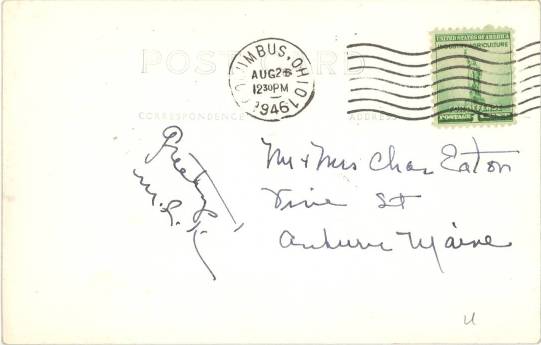 POST CARD
COLUMBUS, OHIO 1
AUG 26
1230 PM
1946
UNITED STATES OF AMERICA
INDUSTRY AGRICULTURE
FOR DEFENSE
POSTAGE 1¢
CORRESPONDENCE
ADDRESS
Greetings
Mr & Mrs Chas Eaton
Vine St
Auburn Maine